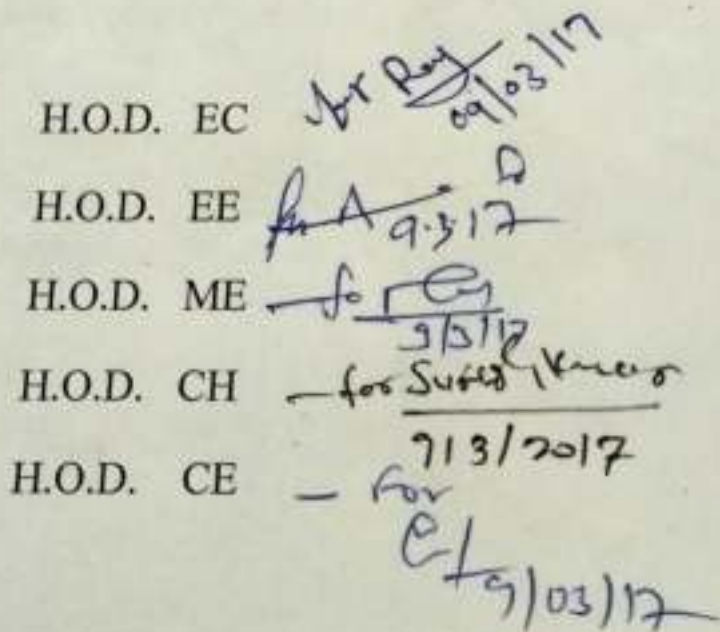 H.O.D. EC for Roy 09/03/17
H.O.D. EE for 9.3.17
H.O.D. ME - for 9/3/17
H.O.D. CH - for
9/3/2017
H.O.D. CE - For
9/03/17